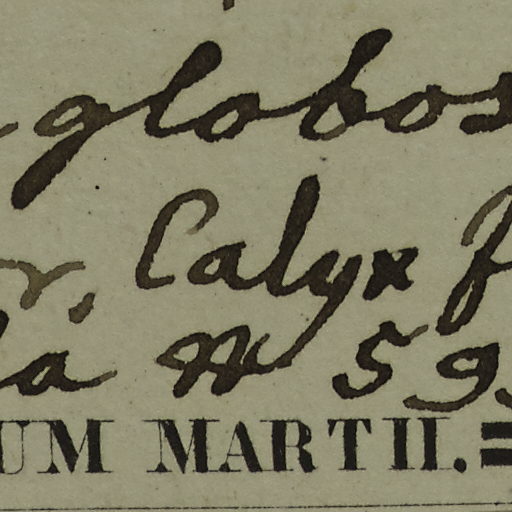 globos
r, Calyx f
la N 59
UM MARTII. =